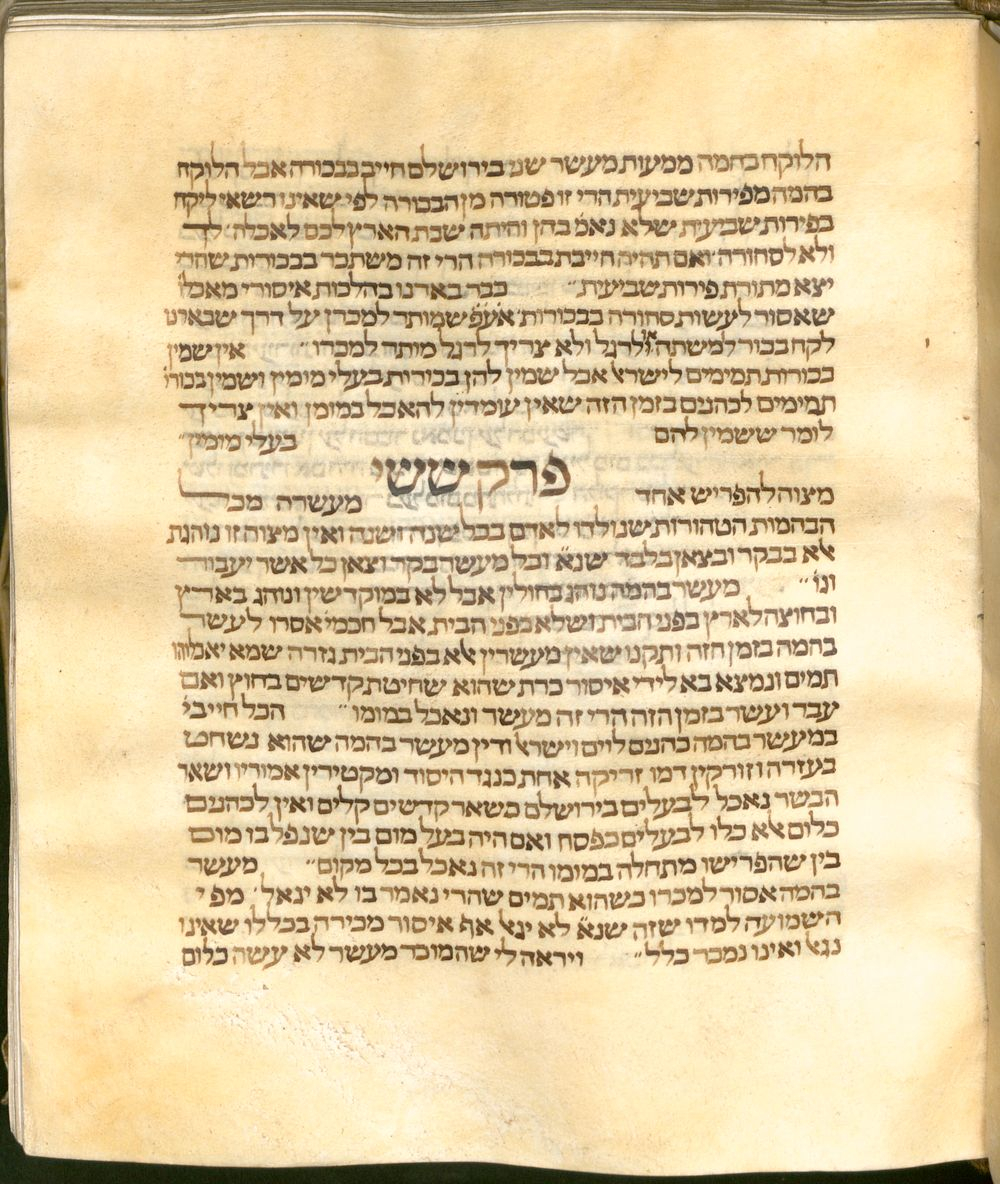 הלוקח בהמה ממעות מעשר שני בירושלם חייב בבכורה אבל הלוקח
בהמה מפירות שביעית הרי זו פטורה מן הבכורה לפי שאינו רשאי ליקח
בפירות שביעית שלא נאמ׳ בהן והיתה שבת הארץ לכם לאכלה לך
ולא לסחורה ואם תהיה חייבת בבכורה הרי זה משתכר בבכורות שהרי
יצא מתורת פירות שביעית״ כבר בארנו בהלכות איסורי מאכלו׳
שאסור לעשות סחורה בבכורות אעפ שמותר למכרן על דרך שבארנו
לקח בכור למשתה או לרגל ולא צריך לרגל מותר למכרו״ אין שמין
בכורות תמימים לישראל אבל שמין להן בכורות בעלי מומין ושמין בכורו׳
תמימים לכהנים בזמן הזה שאין עומדין להאכל במומן ואין צריך
לומר ששמין להם בעלי מומין״
פרק ששי
מצוה להפריש אחד מעשרה מכל
הבהמות הטהורות שנולדו לאדם בכל שנה ושנה ואין מצוה זו נוהגת
אלא בבקר ובצאן בלבד שנא׳ וכל מעשר בקר וצאן כל אשר יעבור
וגו׳״ מעשר בהמה נוהג בחולין אבל לא במוקדשין ונוהג בארץ
ובחוצה לארץ בפני הבית ושלא בפני הבית אבל חכמי׳ אסרו לעשר
בהמה בזמן הזה ותקנו שאין מעשרין אלא בפני הבית גזרה שמא יאכלוהו
תמים ונמצא בא לידי איסור כרת שהוא שחיטת קדשים בחוץ ואם
עבר ועשר בזמן הזה הרי זה מעשר ונאכל במומו״ הכל חייבי׳
במעשר בהמה כהנים לוים וישראל ודין מעשר בהמה שהוא נשחט
בעזרה וזורקין דמו זריקה אחת כנגד היסוד ומקטירין אמוריו ושאר
הבשר נאכל לבעלים בירושלם כשאר קדשים קלים ואין לכהנים
כלום אלא כלו לבעלים כפסח ואם היה בעל מום בין שנפל בו מום
בין שהפרישו מתחלה במומו הרי זה נאכל בכל מקום״ מעשר
בהמה אסור למכרו כשהוא תמים שהרי נאמר בו לא יגאל׳ מפי
השמועה למדו שזה שנא׳ לא יגאל אף איסור מכירה בכללו שאינו
נגאל ואינו נמכר כלל״ ויראה לי שהמוכר מעשר לא עשה כלום